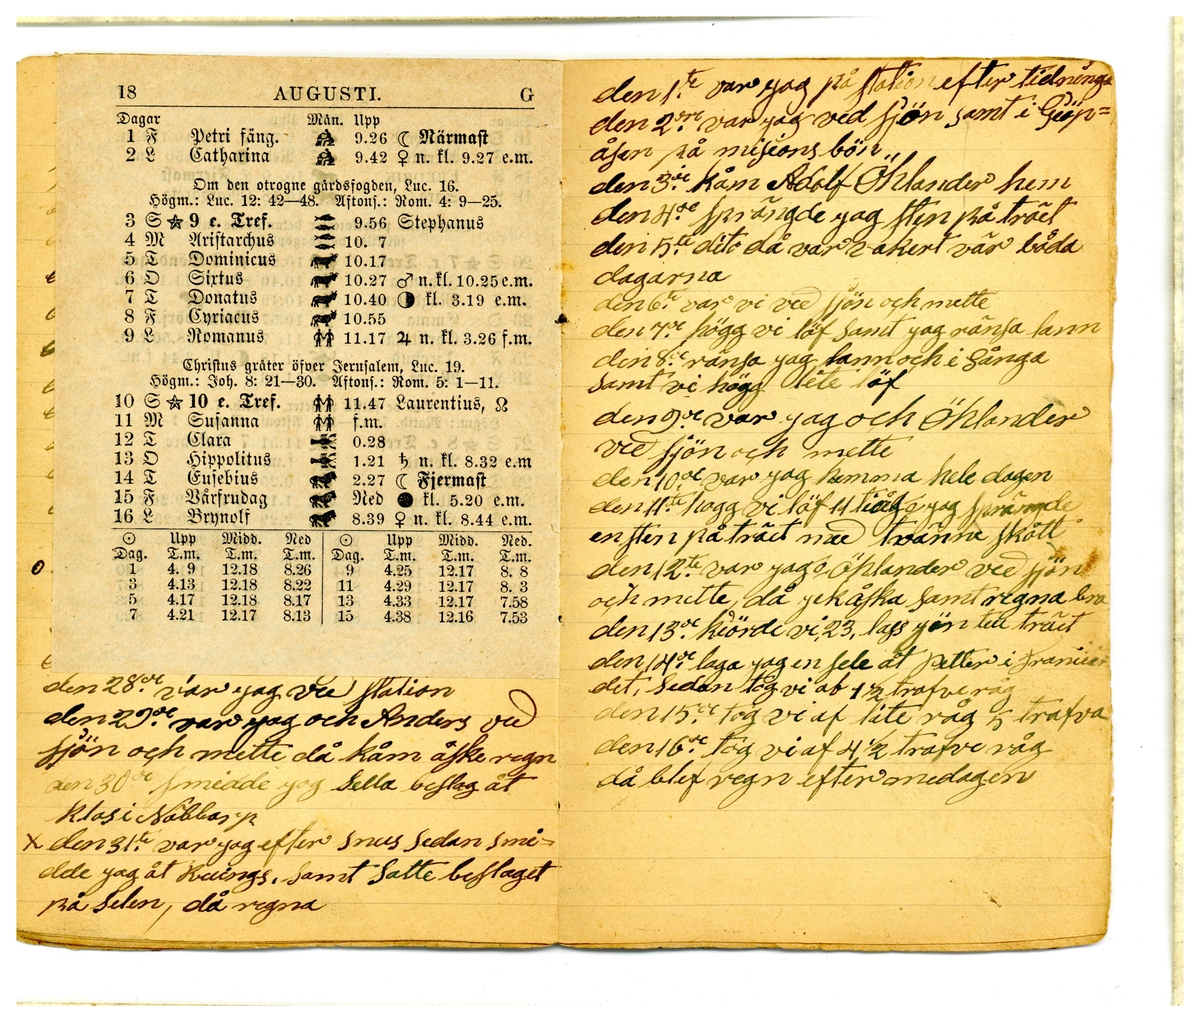 18 AUGUSTI. G
Dagar Mån. Upp
1 F Petri fäng. 9.26 ☾ Närmast
2 L Catharina 9.42 ♀ n. kl. 9.27 e.m.
Om den otrogne gårdsfogden, Luc. 16.
Högm.: Luc. 12: 42—48. Aftons.: Rom. 4: 9—25.
3 S ☆ 9 e. Tref. 9.56 Stephanus
4 M Aristarchus 10. 7
5 T Dominicus 10.17
6 O Sixtus 10.27 ♂ n. kl. 10.25 e.m.
7 T Donatus 10.40 ◑ kl. 3.19 e.m.
8 F Cyriacus 10.55
9 L Romanus 11.17 ♃ n. kl. 3.26 f.m.
Christus gråter öfver Jerusalem, Luc. 19.
Högm.: Joh. 8: 21—30. Aftons.: Rom. 5: 1—11.
10 S ☆ 10 e. Tref. 11.47 Laurentius, ☊
11 M Susanna f.m.
12 T Clara 0.28
13 O Hippolitus 1.21 ♄ n. kl. 8.32 e.m
14 T Eusebius 2.27 ☾ Fjermast
15 F Vårfrudag Ned ● kl. 5.20 e.m.
16 L Brynolf 8.39 ♀ n. kl. 8.44 e.m.
☉ Upp Midd. Ned ☉ Upp Midd. Ned.
Dag. T.m. T.m. T.m. Dag. T.m. T.m. T.m.
1 4. 9 12.18 8.26 9 4.25 12.17 8. 8
3 4.13 12.18 8.22 11 4.29 12.17 8. 3
5 4.17 12.18 8.17 13 4.33 12.17 7.58
7 4.21 12.17 8.13 15 4.38 12.16 7.53
den 28de var yag ved station
den 29de var yag och Anders ved
sjön och mette då kåm åske regn
den 30de smidde yag Sella beslag åt
Klas i Nabbarp
x den 31te var yag efter snus sedan smi-
dde yag åt samt satte beslaget
på selen, då regna
den 1te var yag på station efter tidninga
den 2dre var yag ved sjön samt i Giöp=
åsen på misions bön
den 3de kåm Adolf Öhlander hem
den 4de sprängde yag sten på träet
den 5te dito då var vakert vär båda
dagarna
den 6te var vi ved sjön och mette
den 7de högg vi löf samt yag ränsa lann
den 8de ränsa yag lann och i Gånga
samt vi högg lite löf
den 9de var yag och Öhlander
ved sjön och mette
den 10de var yag hemma hele dagen
den 11te hogg vi löf 4 tiog yag sprängde
en sten på träet med tvänne skött
den 12te var yag o Öhlander ved sjön
och mette, då yek åska samt regna bra
den 13de kiörde vi 23, lass yön till träet
den 14de laga yag en sele åt Petter i
det, sedan tog vi ab 4½ trafve råg
den 15de tog vi af lite råg 5 trafva
den 16de tog vi af 4½ trafve råg
då blef regn efter medagen